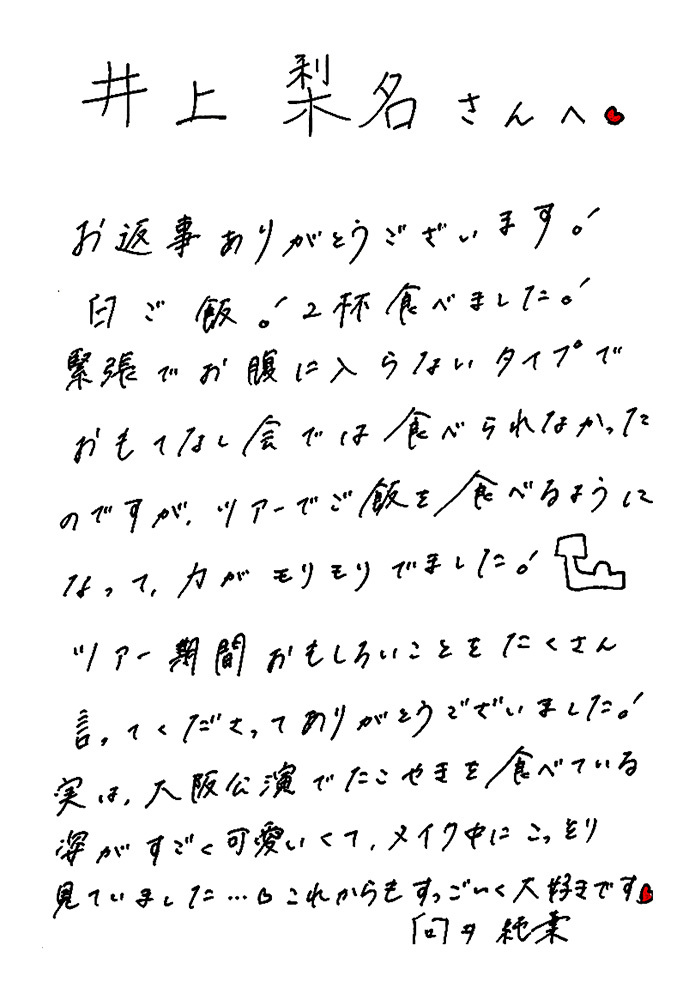 井上 梨名さんへ
お返事ありがとうございます!
白ご飯!2杯食べました!
緊張でお腹に入らないタイプで
おもてなし会では食べられなかった
のですが、ツアーでご飯を食べるように
なって、力がモリモリでました!
ツアー期間おもしろいことをたくさん
言ってくださってありがとうございました!
実は、大阪公演でたこやきを食べている
姿がすごく可愛いくて、メイク中にこっそり
見ていました…これからもすっごいく大好きです
向井 純葉